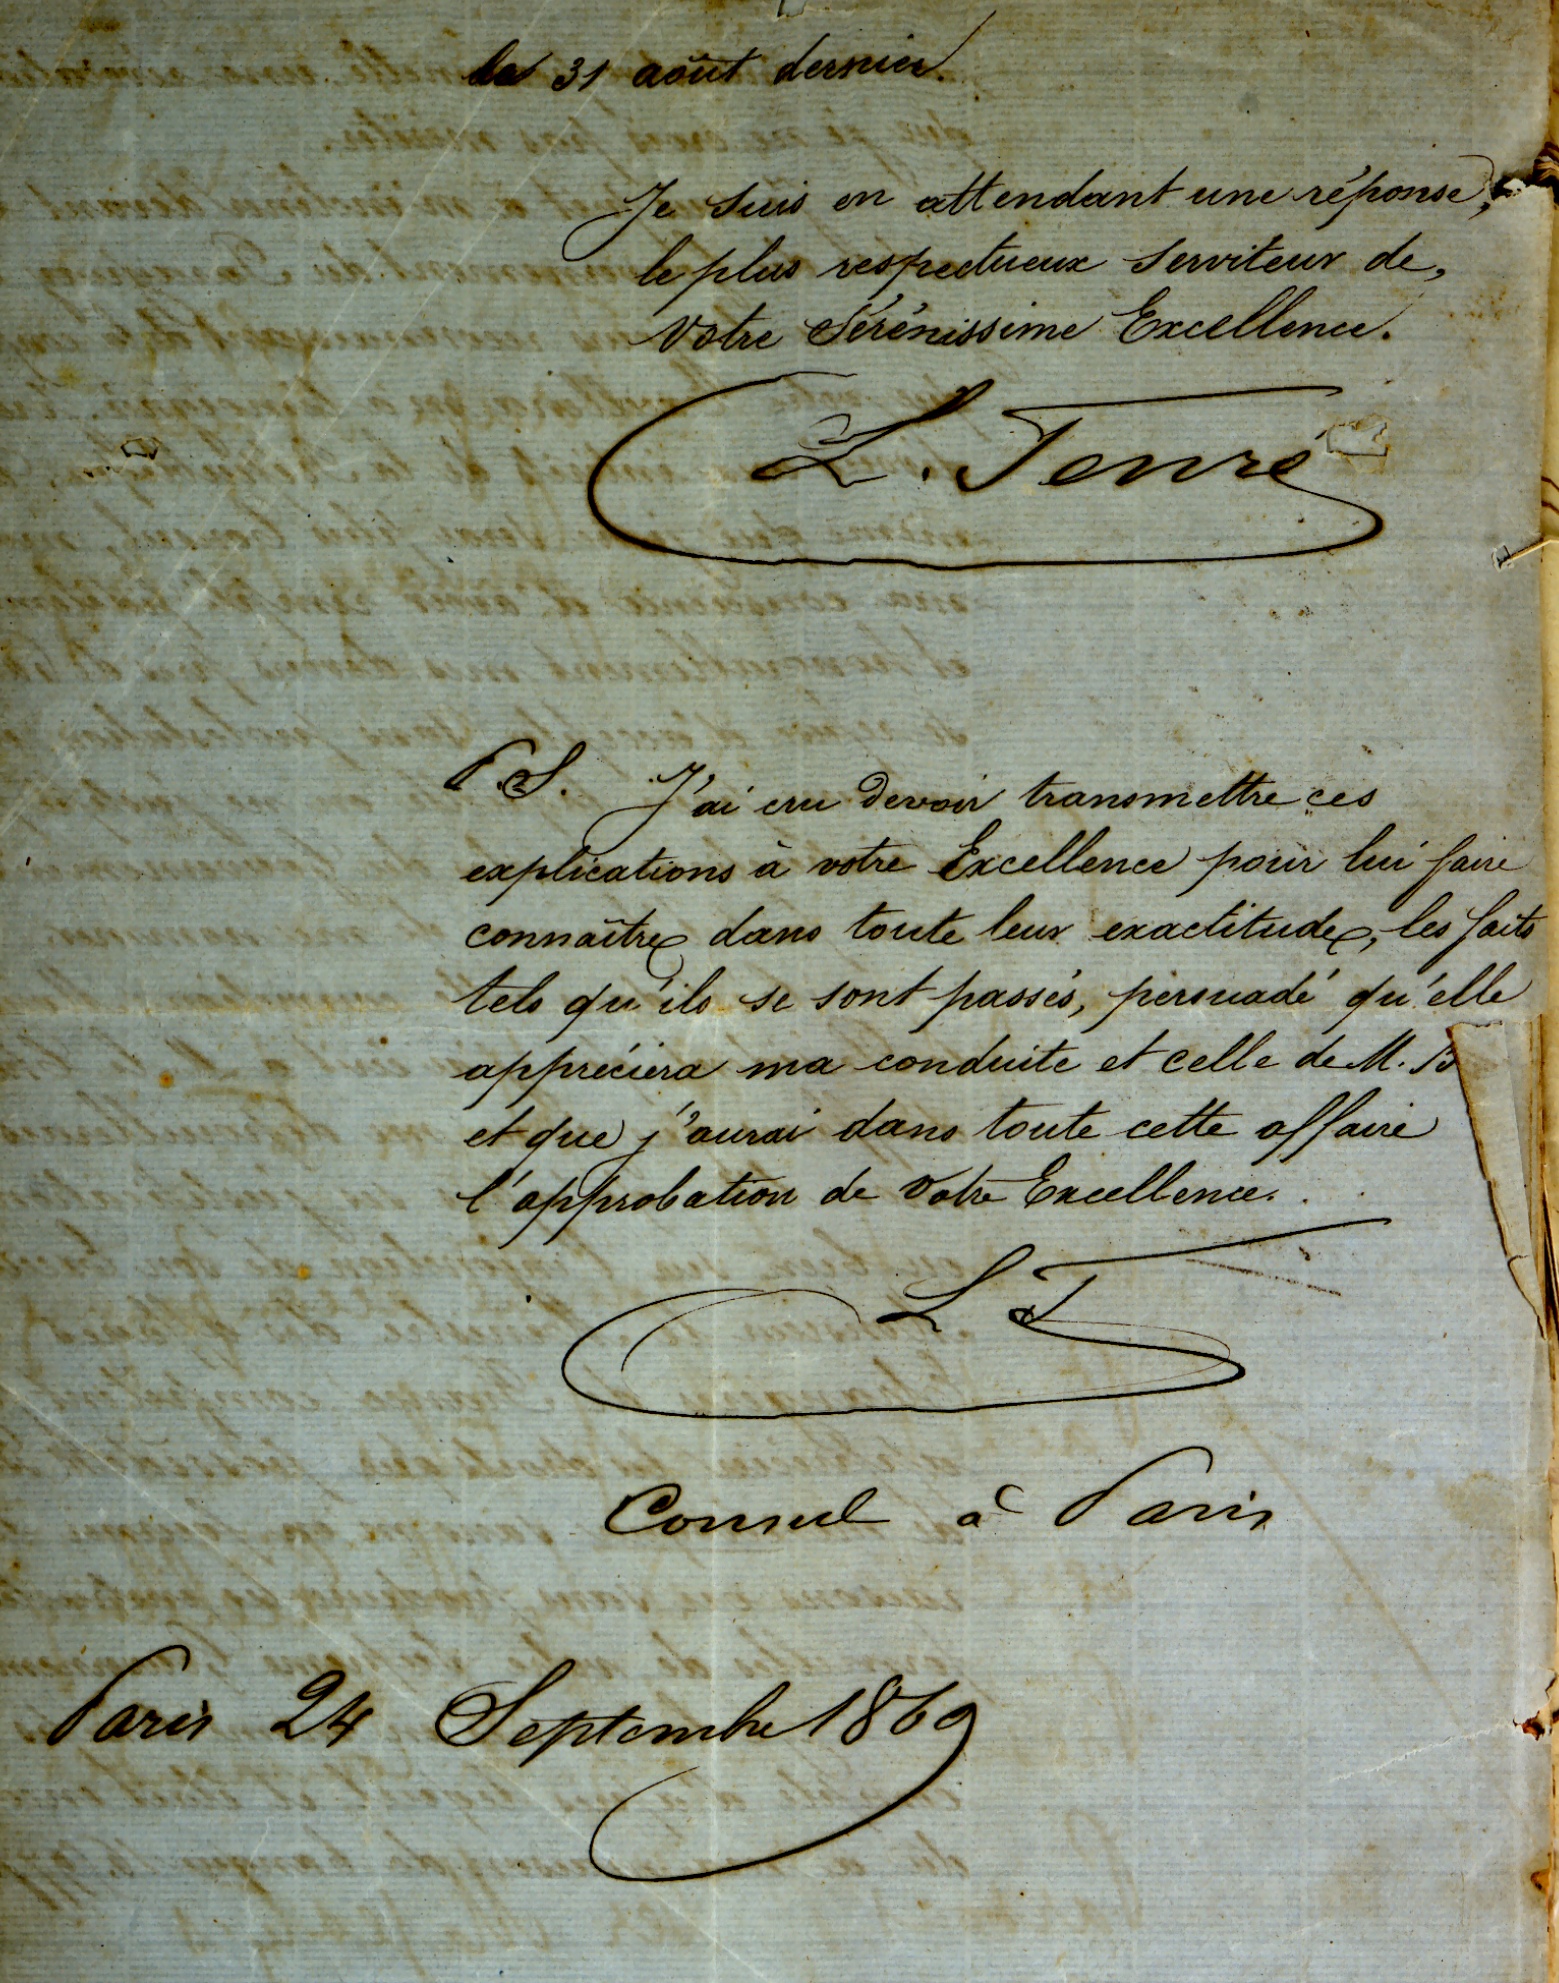 le 31 août dernier.
Je suis en attendant une réponse,
le plus respectueux serviteur de,
Votre Sérénissime Excellence.
L. Tenré
P.S. J'ai cru devoir transmettre ces
explications à votre Excellence pour lui faire
connaître dans toute leur exactitude, les faits
tels qu'ils se sont passés, persuadé qu'elle
appréciera ma conduite et celle de M. B
et que j'aurai dans toute cette affaire
l'approbation de Votre Excellence.
L T
Consul à Paris
Paris 24 Septembre 1869